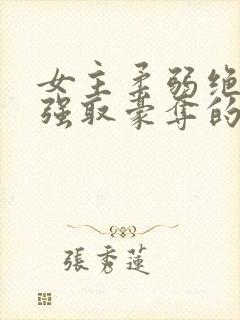 女主柔弱绝
强取豪夺的
張秀蓮